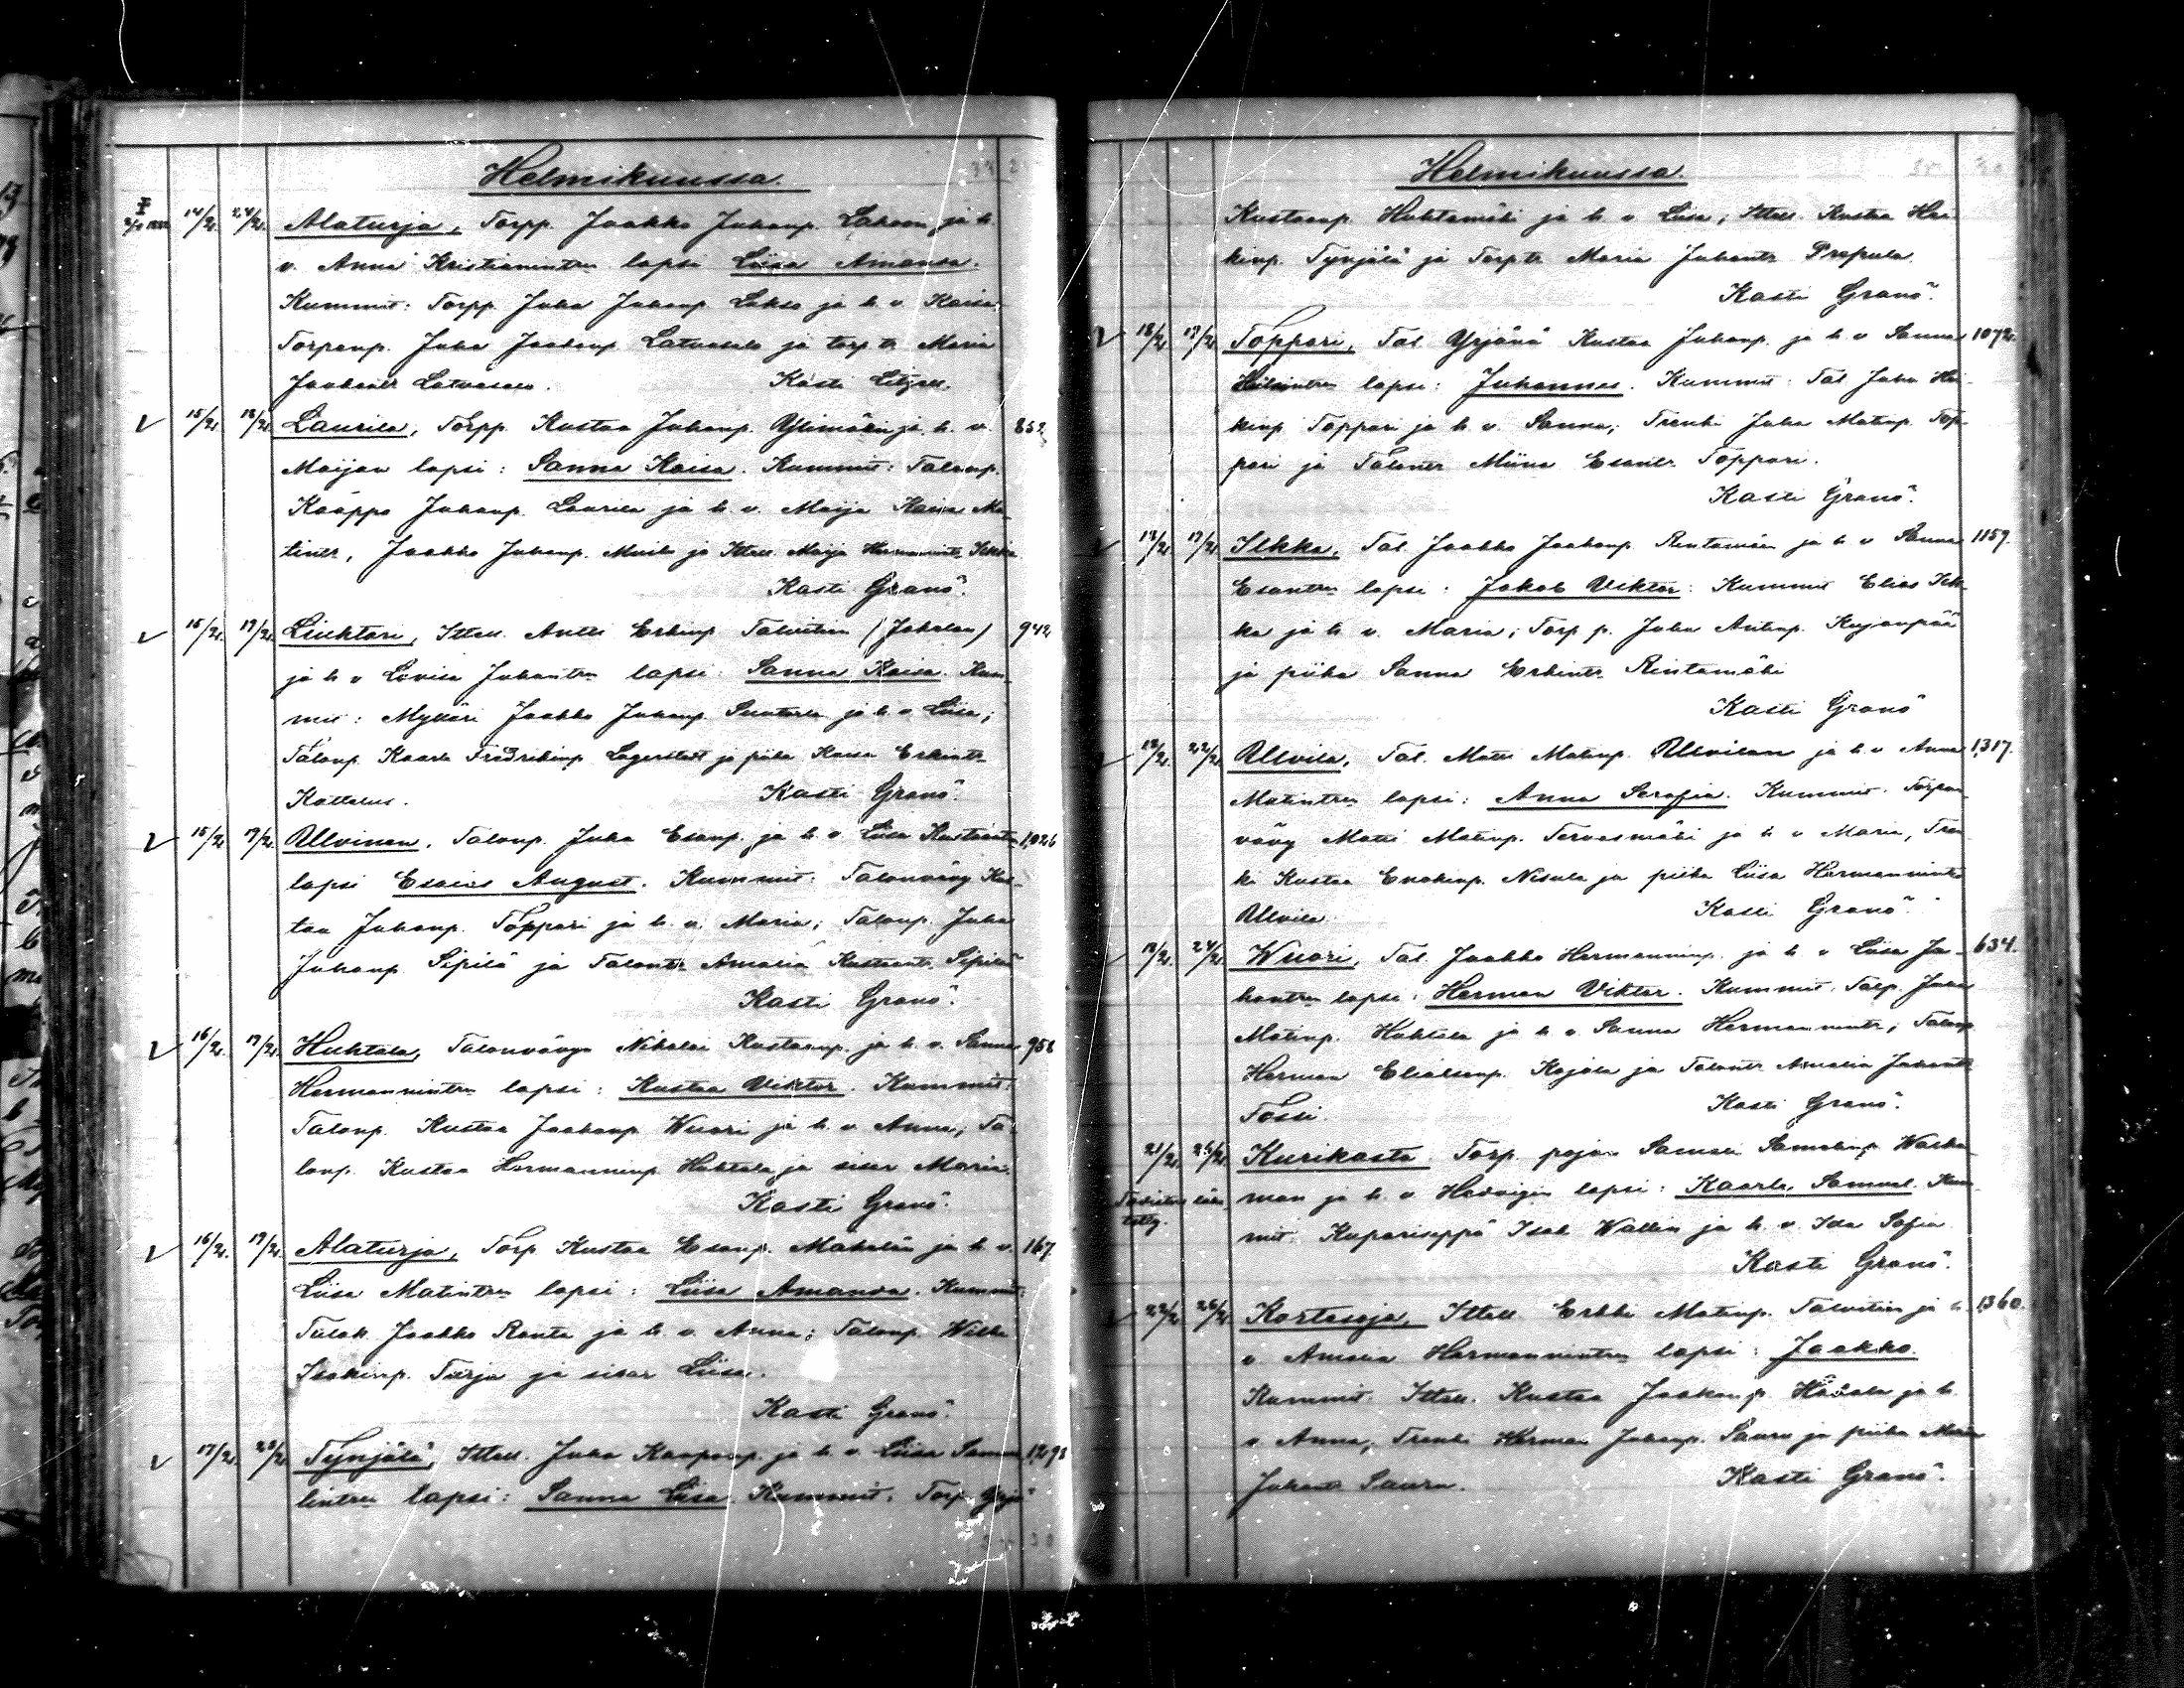 Helmikuussa.
14/2. 24/2. Alaturja, Torpp. Jaakko Juhanp. ja h.
v. Anna Kristianintr. lapsi Liisa Amanda.
Kummit: Torpp. Juha Juhanp. ja h. v. Kaisa,
Torpanp. Juha Jaakonp. ja torp. tr. Maria
Jaakontr. Kasti
15/2. 18/2. Laurila, Torpp. Kustaa Juhanp. Ylimäki ja h. v. 852.
Maijan lapsi: Sanna Kaisa. Kummit: Talonp.
Kaappo Juhanp. Laurila ja h. v. Maija Kaisa Ma-
tintr, Jaakko Juhanp. ja Ittell. Maija Hermannintr.
Kasti Granö.
15/2. 19/2. Liuhtari, Ittell. Antti Erkinp. Talvitien (Jokelan) 942
ja h. v. Lovisa Juhantrn lapsi: Sanna Kaisa. Kum-
mit: Mylläri Jaakko Juhanp. ja h. v. Liisa;
Talonp. Kaarle Fredrikinp. Lagerstedt ja piika Kaisa Erkintr.
Kattelus. Kasti Granö.
15/2. 19/2. Ullvinen, Talonp. Juha Esanp. ja h. v. Liisa Kustaantrn 1,026
lapsi Esaias August. Kummit: Talonvävy Kus-
taa Juhanp. Toppari ja h. v. Maria; Talonp. Juha
Juhanp. Sipilä ja Talontr. Amalia Kustaantr. Sipilä
Kasti Granö.
16/2. 19/2. Huhtala, Talonvävyn Nikolai Kustaanp. ja h. v. Sanna 958
Hermannintrn lapsi: Kustaa Viktor. Kummit:
Talonp. Kustaa Jaakonp. Wuori ja h. v. Anna; Ta-
lonp. Kustaa Hermanninp. Huhtala ja sisar Maria.
Kasti Granö.
16/2. 19/2. Alaturja, Torp. Kustaa Esanp. Mäkelän ja h. v. 167.
Liisa Matintrn lapsi: Liisa Amanda. Kummit:
Talok. Jaakko Ranta ja h. v. Anna; Talonp. Wilho
Isakinp. Turja ja sisar Liisa.
Kasti Granö.
17/2. 23/2 Tynjälä, Ittell. Juha Kaaponp. ja h. v. Liisa Samue- 1298
lintrn lapsi: Sanna Liisa. Kummit: Torp. Yrjö
Helmikuussa.
Kustaanp. Huhtamäki ja h. v. Liisa; Ittell. Kustaa Hei-
kinp. Tynjälä ja Torp. tr. Maria Juhantr. Prepula.
Kasti Granö.
18/2. 19/2. Toppari, Tal. Yrjänä Kustaa Juhanp. ja h. v. Sanna 1072.
lapsi: Juhannes. Kummit: Tal. Juha Hei-
kinp. Toppari ja h. v. Sanna; Trenki Juha Matinp. Top-
pari ja Talontr. Miina Esantr. Toppari.
Kasti Granö.
12/2. 19/2. Ilkka, Tal. Jaakko Jaakonp. Rintamäen ja h. v. Sanna 1159.
Esantrn lapsi: Jakob Viktor: Kummit Elias Ilk-
ka ja h. v. Maria; Torp. p. Juha Antinp. Kujanpää
ja piika Sanna Erkintr. Rintamäki
Kasti Granö
19/2. 22/2. Ullvila, Tal. Matti Matinp. Ullvilan ja h. v. Anna 1,317.
Matintrn lapsi: Anna Serafia. Kummit: Torpan-
vävy Matti Matinp. Tervasmäki ja h. v. Maria, Tren-
ki Kustaa Enokinp. Nisula ja piika Liisa Hermannintr.
Ullvila. Kasti Granö.
19/2. 24/2. Wuori, Tal. Jaakko Hermanninp. ja h. v. Liisa Ju- 634.
hantrn lapsi: Herman Viktor. Kummit: Talp. Juha
Matinp. Huhtala ja h. v. Sanna Hermannintr; Talonp.
Herman Eliaksenp. Kojola ja Talontr. Amalia Juhantr.
Kasti Granö.
21/2. 26/2. Kurikasta Torp. pojan Samuli Samulinp. Waska-
man ja h. v. Hedvigin lapsi: Kaarle Samuel. Kum-
mit: Kupariseppä Isak Wallin ja h. v. Ida Sofia.
Kasti Granö.
22/2 26/2 Kortesoja, Ittell. Erkki Matinp. Talvitien ja h. 1360.
v. Amalia Hermannintrn lapsi: Jaakko.
Kummit: Ittell. Kustaa Jaakonp. ja h.
v. Anna; Trenki Herman Juhanp. Sauru ja piika Maria
Juhantr. Sauru. Kasti Granö.